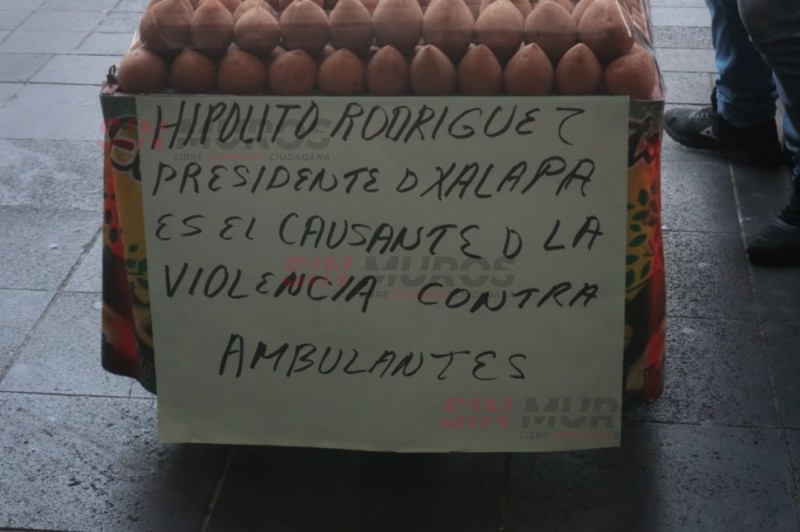 HIPOLITO RODRIGUEZ
PRESIDENTE D XALAPA
ES EL CAUSANTE D LA
VIOLENCIA CONTRA
AMBULANTES
SIN MUROS
LIBRE EXPRESIÓN CIUDADANA
SIN MUROS
LIBRE EXPRESIÓN CIUDADANA
SIN MUROS
LIBRE EXPRESIÓN CIUDADANA